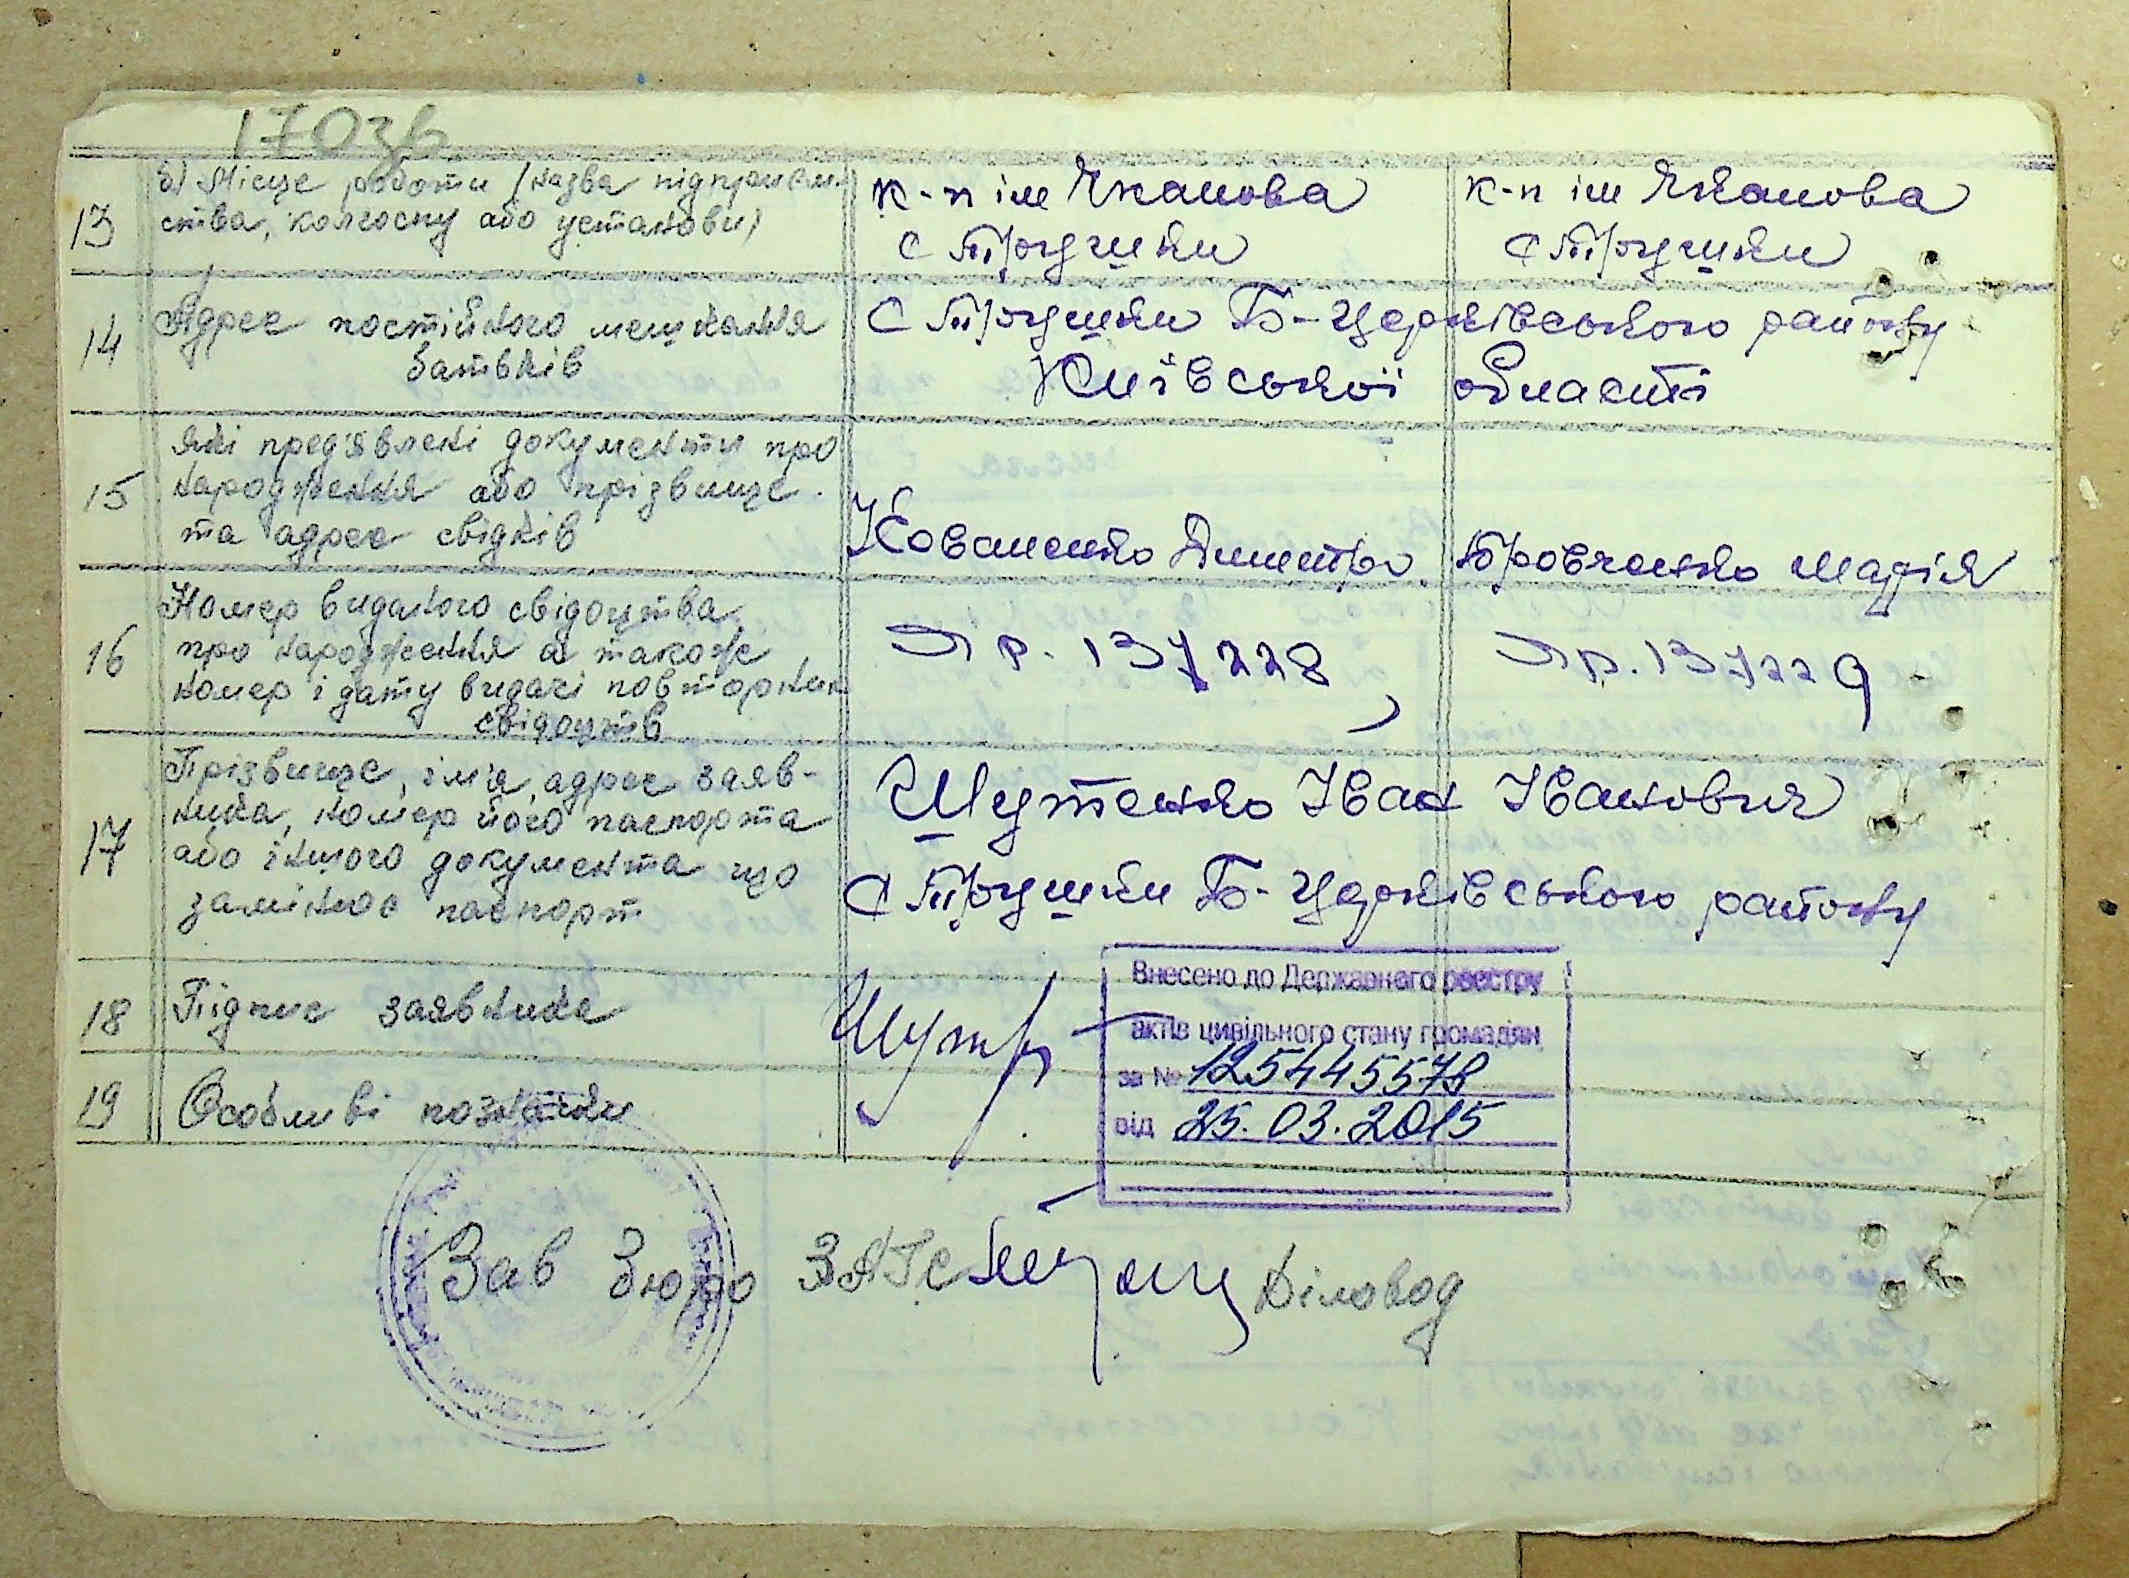 170зв
13 б) Місце роботи (назва підприєм-
ства, колгоспу або установи)
к-п ім Чкалова
с Трушки
к-п ім Чкалова
с Трушки
14 Адрес постійного мешкання
батьків
с Трушки Б-Церківського району
Київської області
15 які пред'явлені документи про
народження або прізвище
та адрес свідків
Коваленко Дмитро Бровченко Марія
16 Номер виданого свідоцтва
про народження а також
номер і дату видачі повторних
свідоцтв
Яр. 137228, Яр. 137229
17 Прізвище, ім'я, адрес заяв-
ника, номер його паспорта
або іншого документа що
замінює паспорт
Шутенко Іван Іванович
с Трушки Б-Церківського району
18 Підпис заявника
19 Особливі познаки
Внесено до Державного реєстру
актів цивільного стану громадян
за № 125445578
від 25.03.2015
Зав Бюро ЗАГС Діловод